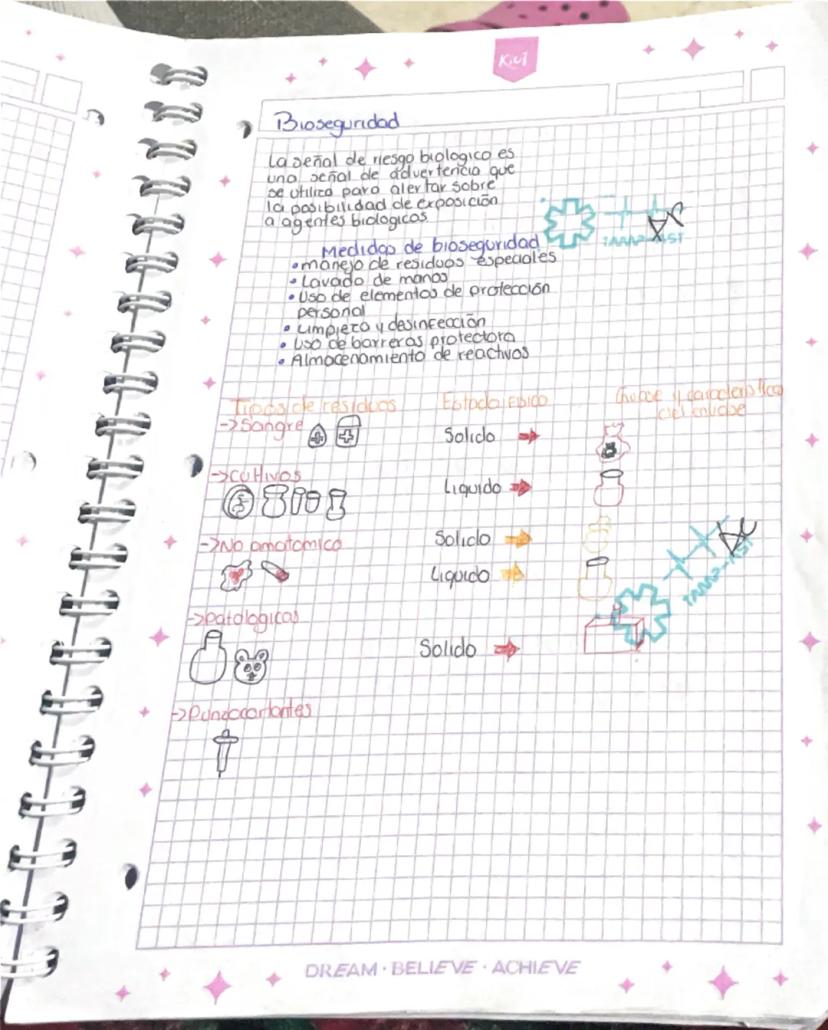 Kiut
Bioseguridad
La señal de riesgo biologico es
una señal de advertencia que
se utiliza para alertar sobre
la posibilidad de exposición
a agentes biologicos
Medidas de bioseguridad
• manejo de residuos especiales
• Lavado de manos
• Uso de elementos de protección
personal
• Limpieza y desinfección
• Uso de barreras protectora
• Almacenamiento de reactivos
Tipos de residuos Estado Fisico Envase y caracteristica
del envase
-> Sangre Solido
-> Cultivos Liquido
-> No anatomico Solido
Liquido
-> Patologicos
Solido
-> Punzocortantes
DREAM · BELIEVE · ACHIEVE